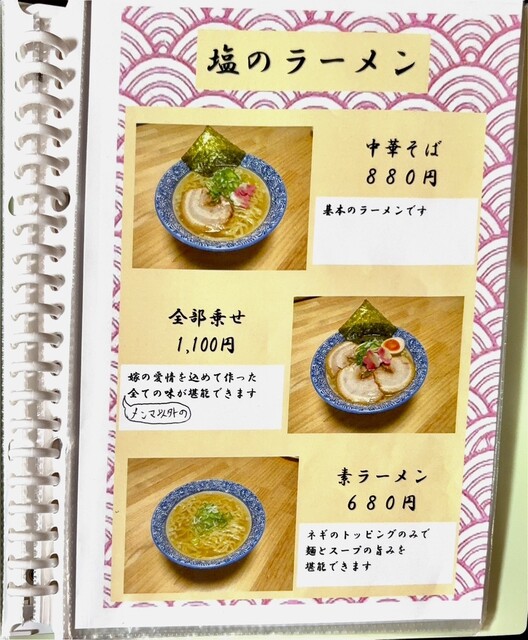 塩のラーメン
中華そば
880円
基本のラーメンです
全部乗せ
1,100円
嫁の愛情を込めて作った
全ての味が堪能できます
メンマ以外の
素ラーメン
680円
ネギのトッピングのみで
麺とスープの旨みを
堪能できます